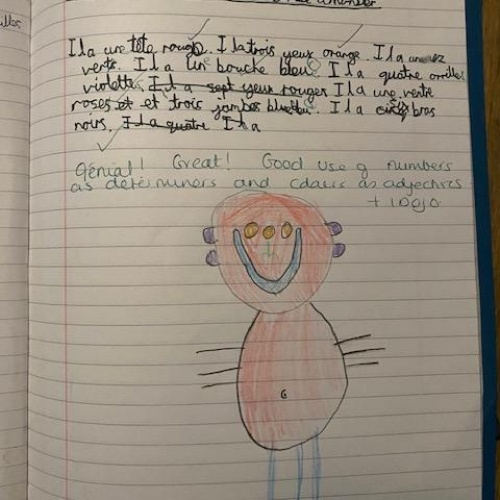 Il a une tête rouge. Il a trois yeux orange. Il a une nez
verte. Il a une bouche bleu. Il a quatre orrilles
violette. Il a sept yeux rouges Il a une ventre
roses et et trois jambes bleu. Il a cinq bras
noirs. Il a quatre Il a
Génial! Great! Good use of numbers
as determiners and colours as adjectives
+ 1 Dojo